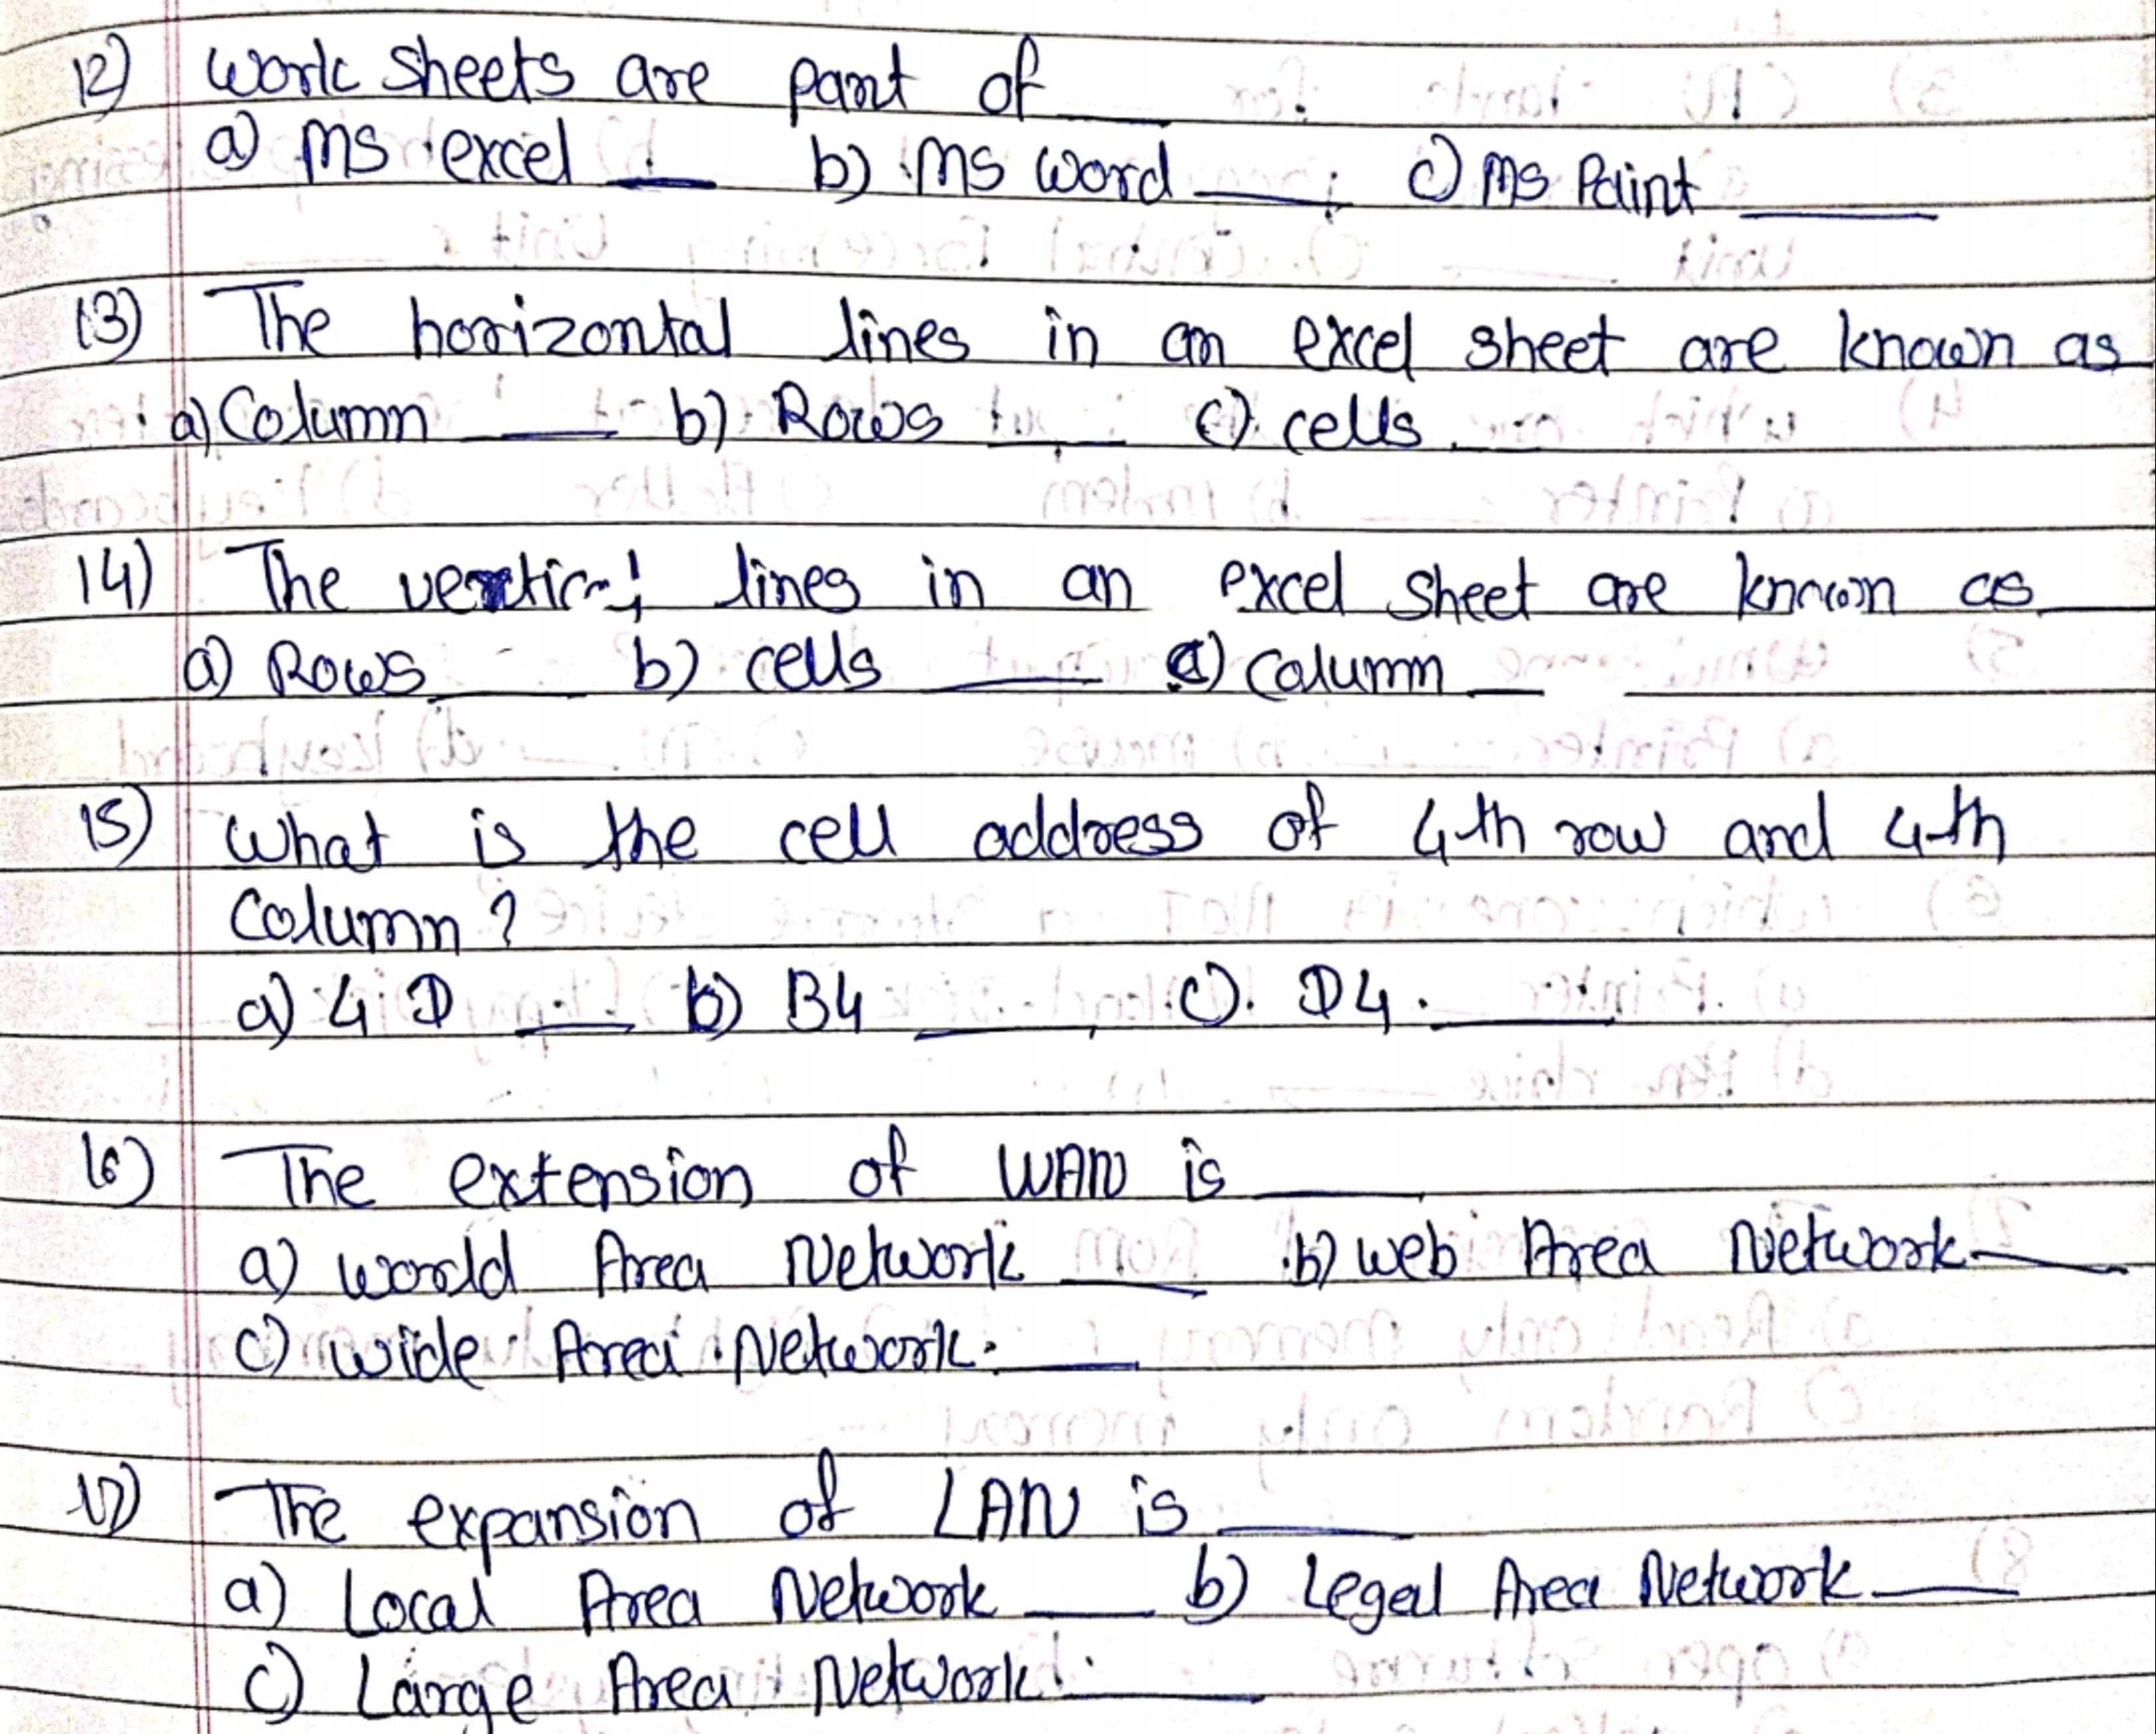 12) Work Sheets are part of ___
a) MS excel ___ b) MS Word ___ c) MS Paint ___
13) The horizontal lines in an excel sheet are known as
a) Column ___ b) Rows ___ c) cells ___
14) The vertical lines in an excel sheet are known as
a) Rows ___ b) cells ___ c) Column ___
15) What is the cell address of 4th row and 4th
Column?
a) 4D ___ b) B4 ___ c) D4. ___
16) The extension of WAN is ___
a) world Area Network ___ b) web Area Network ___
c) wide Area Network. ___
17) The expansion of LAN is ___
a) Local Area Network ___ b) Legal Area Network ___
c) Large Area Network. ___